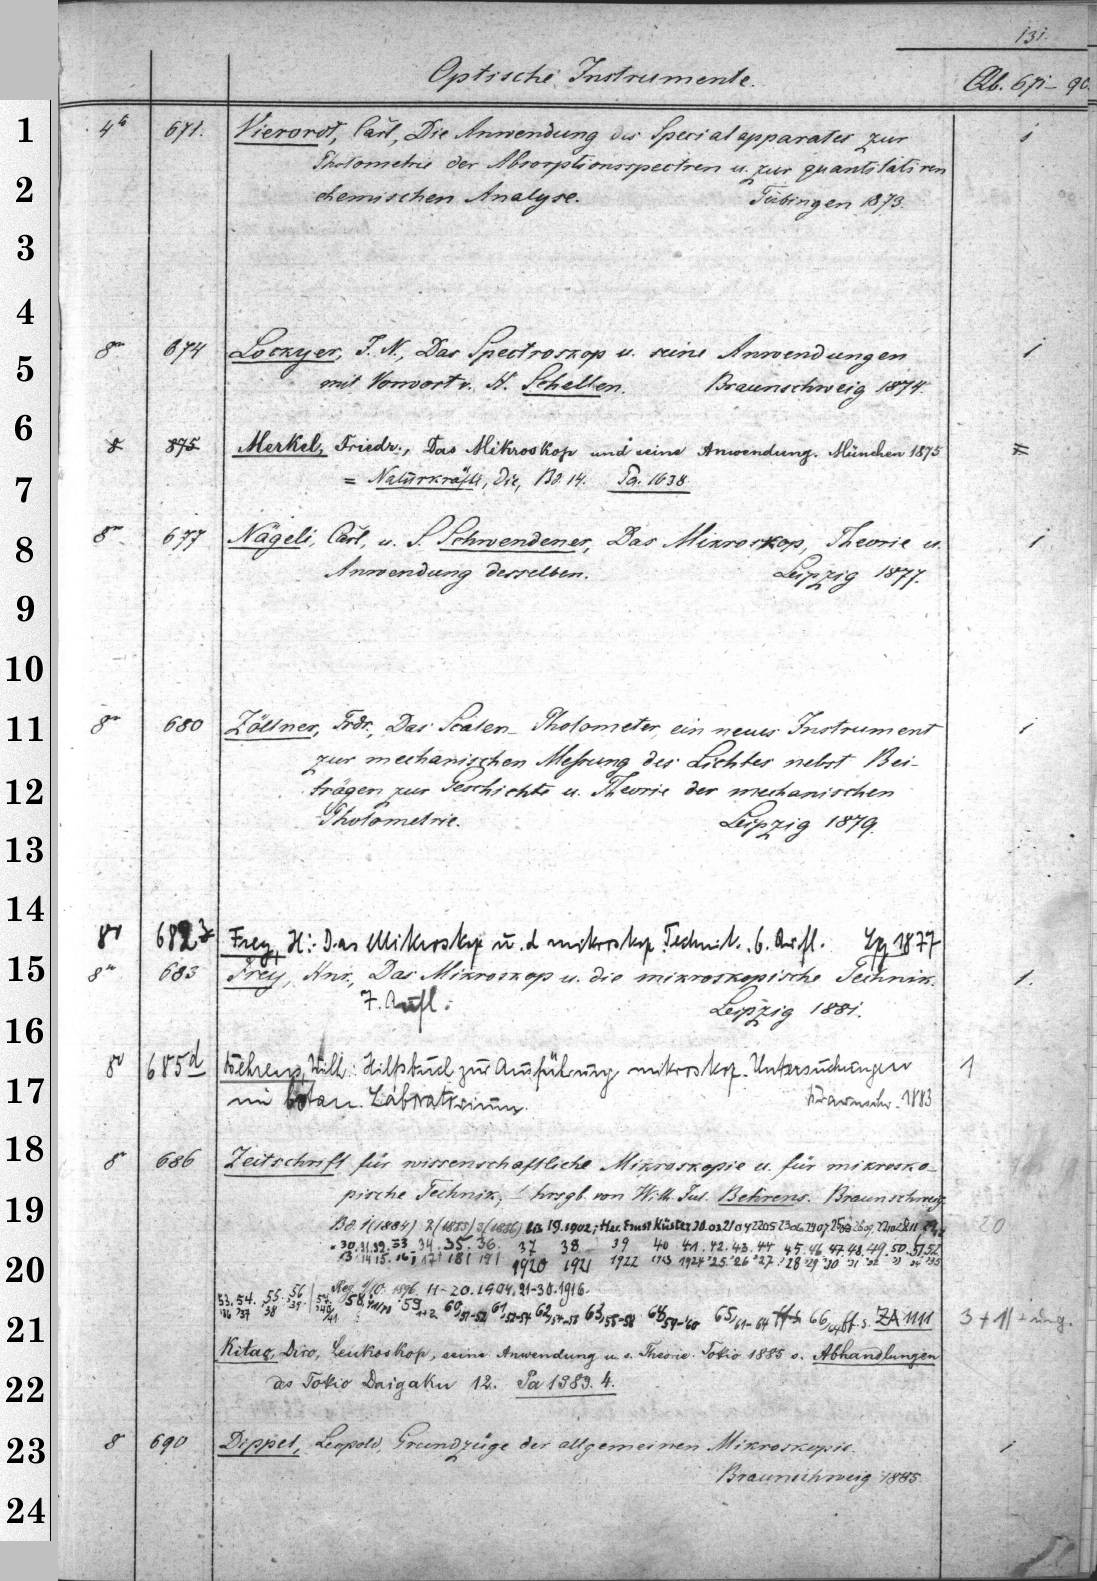 131.
Optische Instrumente. Qb. 671-90.
1
4to 671. Vierordt, Carl, Die Anwendung des Spectralapparates zur 1
Photometrie der Absorptionsspectren u. zur quantitativen
2
chemischen Analyse. Tübingen 1873.
3
4
8vo 674 Lockyer, J. N., Das Spectroskop u. seine Anwendungen 1
5
mit Vorwort v. H. Schellen. Braunschweig 1874.
6
8 875 Merkel, Friedr., Das Mikroskop und seine Anwendung. München 1875 =
7
= Naturkräfte, Die, Bd. 14. Pa. 1638
8
8vo 677 Nägeli, Carl, u. S. Schwendener, Das Mikroskop, Theorie u. 1
Anwendung desselben. Leipzig 1877.
9
10
11
8vo 680 Zöllner, Frdr., Das Scalen-Photometer, ein neues Instrument 1
zur mechanischen Meßung des Lichtes nebst Bei-
12
trägen zur Geschichte u. Theorie der mechanischen
Photometrie. Leipzig 1879.
13
14
8vo 682 Frey, H.: Das Mikroskop u. d. mikroskop. Technik. 6. Aufl. Lpg 1877
15
8vo 683 Frey, Hnr., Das Mikroskop u. die mikroskopische Technik. 1.
7. Aufl. Leipzig 1881.
16
8o 685d Behrens, Wilh.: Hilfsbuch zur Ausführung mikroskop. Untersuchungen 1
17
im botan. Laboratorium. Braunschw. 1883
18
8o 686 Zeitschrift für wissenschaftliche Mikroskopie u. für mikrosko-
pische Technik, hrsgb. von Wilh. Jul. Behrens. Braunschweig.
19
Bd. 1(1884) 2(1885) 3(1886) bis 19.1902; Her. Ernst Küster 20
30. 31. 32. 33 34. 35. 36. 37 38 39 40 41. 42. 43. 44 45. 46. 47. 48. 49. 50. 51. 52
20
13 14 15. 16 17 18 19 1920 1921 1922 1923 1924 25 26 27 28 29 30 31 32 33 34 35
Reg. 1/10 1896. 11-20.1904. 21-30.1916.
53. 54. 55. 56 58 59 60 61 62 63 64 65 66 s. ZA 1111 3 + 11
21
Kitao, Diro, Leukoskop, seine Anwendung u. s. Theorie. Tokio 1885 s. Abhandlungen
22
des Tokio Daigaku 12. Pa 1389. 4.
23
8 690 Dippel, Leopold, Grundzüge der allgemeinen Mikroskopie. 1
Braunschweig 1885
24